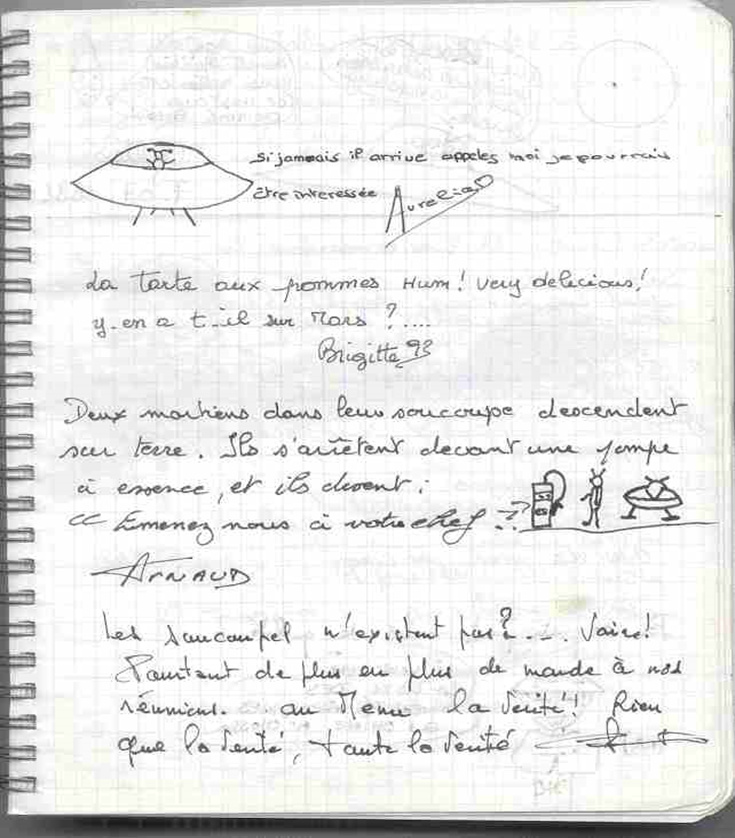 si jamais il arrive appeles moi je pourrais
être interessée Aurelie
La Tarte aux pommes Hum! Very delicious!
y-en a t-il sur Mars ?....
Brigitte 93
Deux martiens dans leur soucoupe descendent
sur terre. Ils s'arrêtent devant une pompe
à essence, et ils disent :
<< Emenez nous à votre chef >>
ARNAUD
Les Soucoupes n'existent pas? ... Voire!
Pourtant de plus en plus de monde à nos
réunions. au Menu la Vérité! Rien
que la Vérité, toute la Vérité